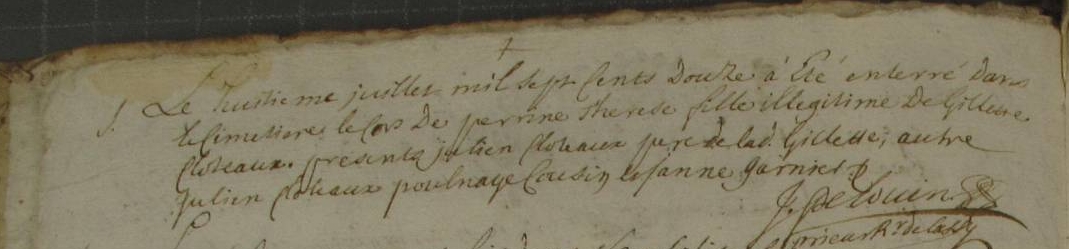 Le huitieme juillet mil sept cents douze à été enterré dans
le Cimetiere le Cors De perrine Therese fille illegitime De Gillette
Cloteaux. presents julien Cloteaux pere de lad. Gillette, autre
julien Cloteaux Cousin et janne garnier